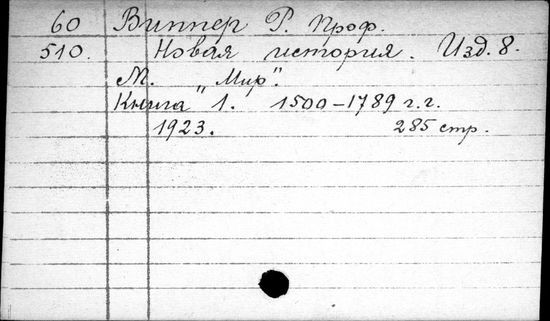 60 Виппер Р. Проф.
510. Новая история. Изд. 8.
М. "Мир".
Книга 1. 1500-1789 г.г.
1923. 285 стр.